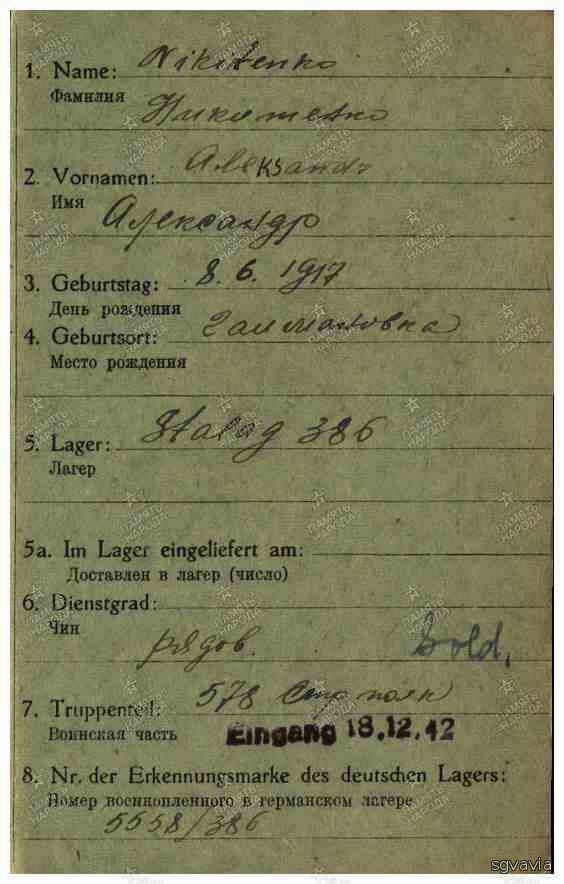 1. Name: Nikitenko
Фамилия Никитенко
2. Vornamen: Aleksandr
Имя Александр
3. Geburtstag: 8. 6. 1917
День рождения
4. Geburtsort:
Место рождения
5. Lager: Stalag 386
Лагер
5a. Im Lager eingeliefert am:
Доставлен в лагер (число)
6. Dienstgrad:
Чин рядов. Sold.
7. Truppenteil: 578 Стр полк
Воинская часть Eingang 18.12.42
8. Nr. der Erkennungsmarke des deutschen Lagers:
Номер военнопленного в германском лагере
5558/386
ПАМЯТЬ НАРОДА
sgvavia